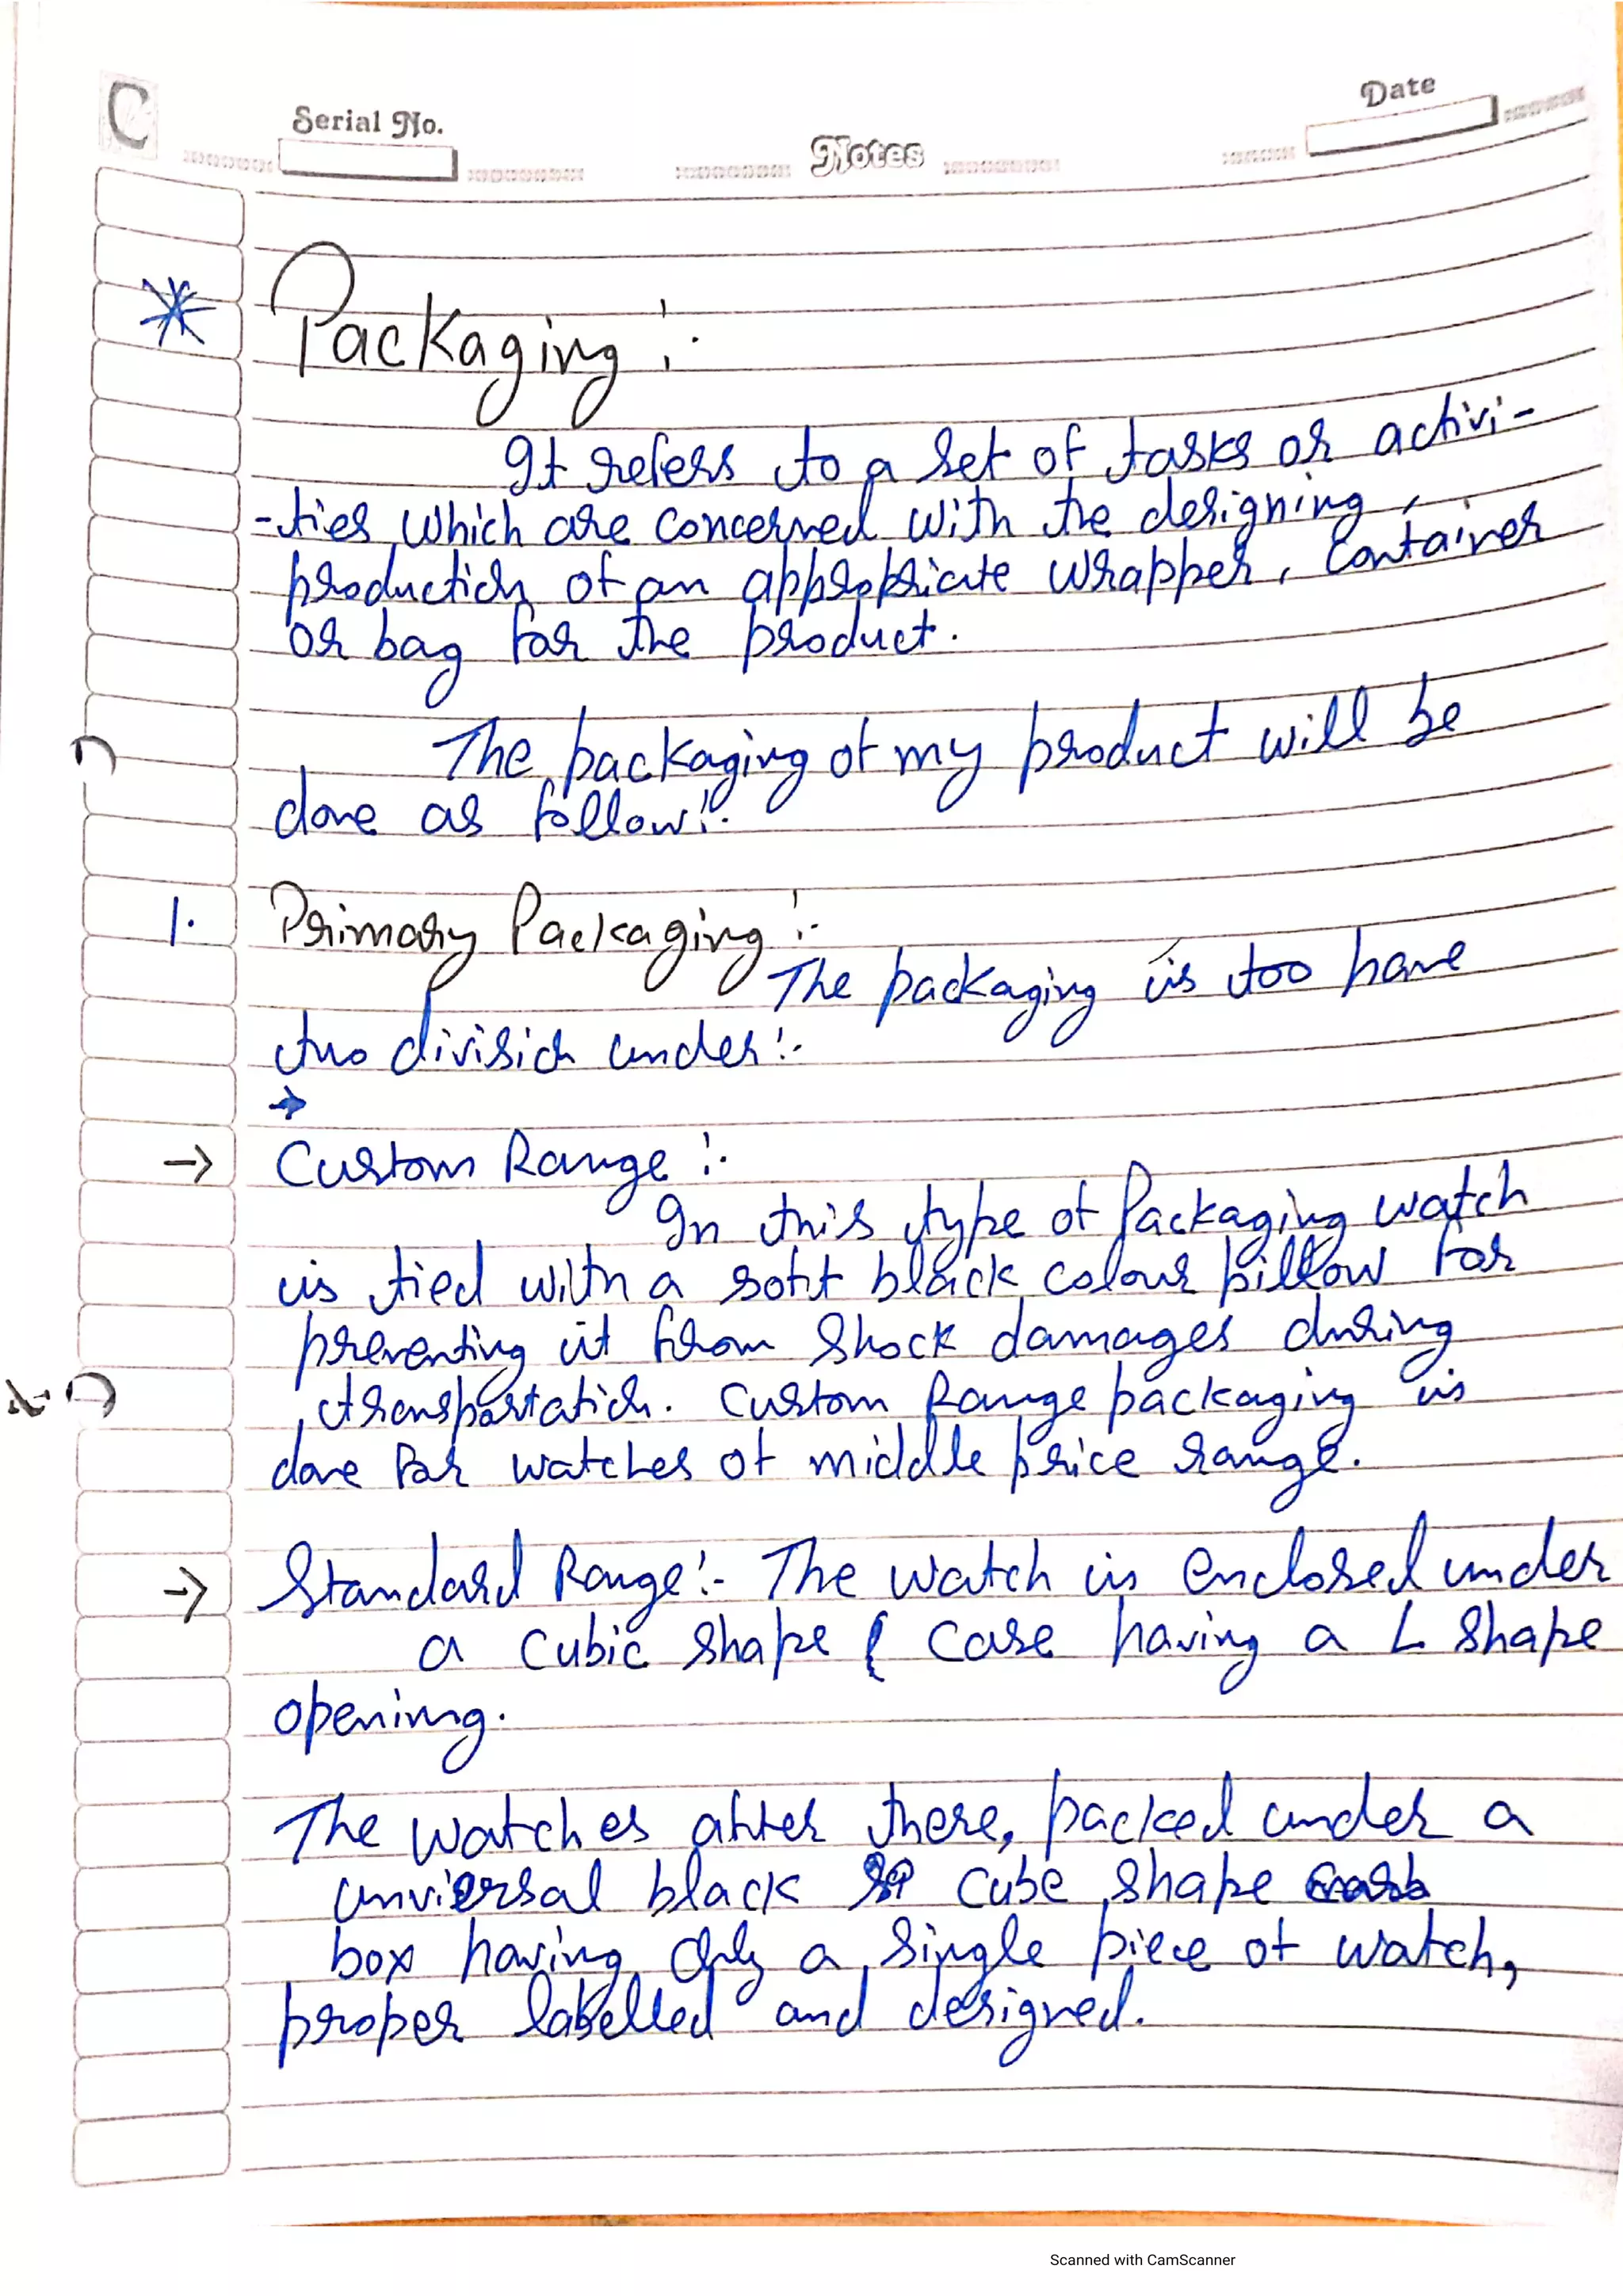 C
Serial No.
Notes
Date
* Packaging :-
It refers to a set of tasks or activi-
-ties which are concerned with the designing,
production of an appropriate wrapper, container
or bag for the product.
The packaging of my product will be
done as follow:-
1. Primary Packaging :-
The packaging is too have
two division under :-
→
→ Custom Range :-
In this type of Packaging watch
is tied with a soft black colour pillow for
preventing it from Shock damages during
transportation. Custom Range packaging is
done for watches of middle price range.
→ Standard Range :- The watch is enclosed under
a cubic shape case having a L shape
opening.
The watches after there, packed under a
unviersal black cube shape
box having only a single piece of watch,
proper labelled and designed.
Scanned with CamScanner